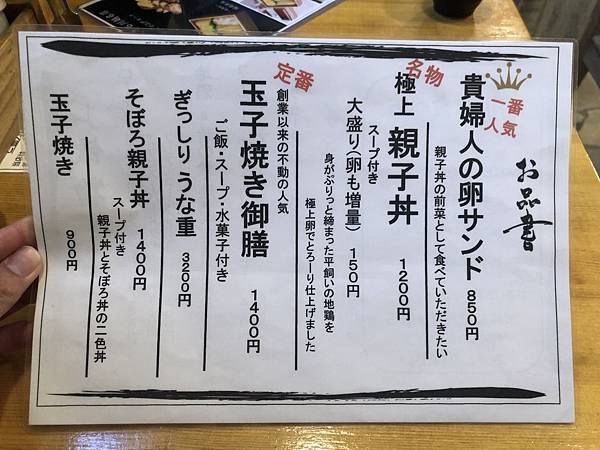 お品書
一番
人気
貴婦人の卵サンド 850円
親子丼の前菜として食べていただきたい
名物
極上 親子丼 1200円
スープ付き
大盛り(卵も増量) 150円
身がぷりっと締まった平飼いの地鶏を
極上卵でとろーり仕上げました
定番
創業以来の不動の人気
玉子焼き御膳 1400円
ご飯・スープ・水菓子付き
ぎっしり うな重 3200円
そぼろ親子丼 1400円
スープ付き
親子丼とそぼろ丼の二色丼
玉子焼き 900円